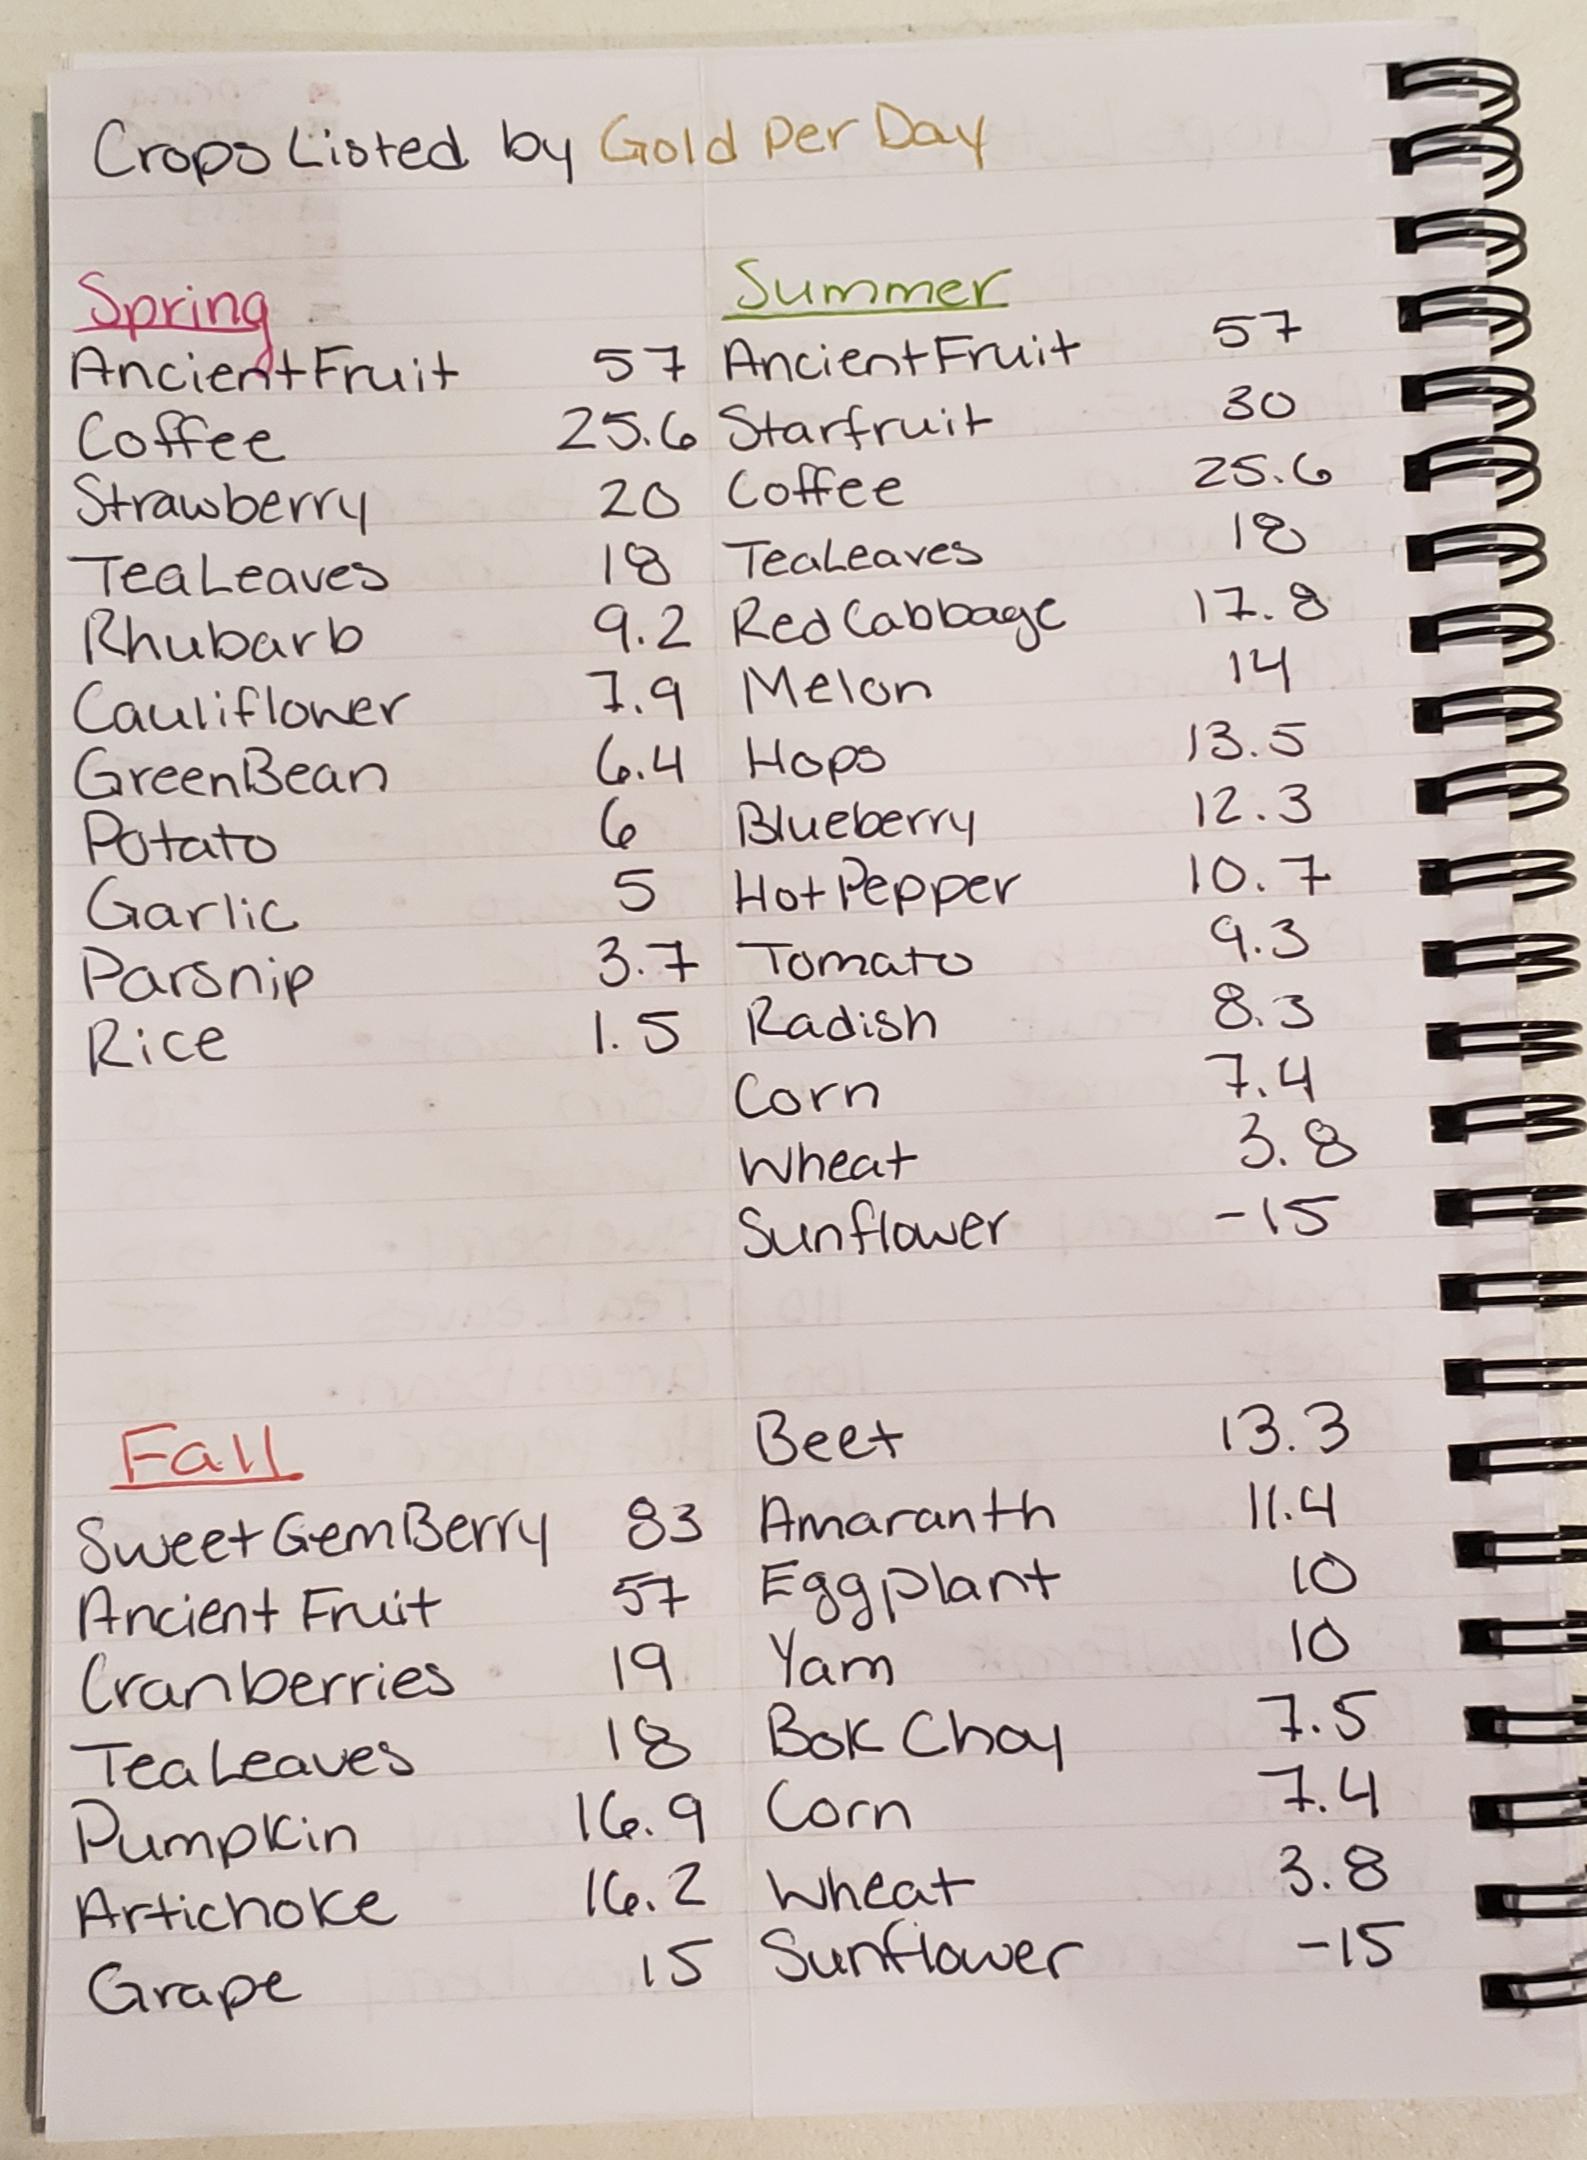 Crops Listed by Gold Per Day
Spring
Ancient Fruit 57
Coffee 25.6
Strawberry 20
Tea Leaves 18
Rhubarb 9.2
Cauliflower 7.9
Green Bean 6.4
Potato 6
Garlic 5
Parsnip 3.7
Rice 1.5
Summer
Ancient Fruit 57
Starfruit 30
Coffee 25.6
Tea Leaves 18
Red Cabbage 17.8
Melon 14
Hops 13.5
Blueberry 12.3
Hot Pepper 10.7
Tomato 9.3
Radish 8.3
Corn 7.4
Wheat 3.8
Sunflower -15
Fall
Sweet Gem Berry 83
Ancient Fruit 57
Cranberries 19
Tea Leaves 18
Pumpkin 16.9
Artichoke 16.2
Grape 15
Beet 13.3
Amaranth 11.4
Eggplant 10
Yam 10
Bok Choy 7.5
Corn 7.4
Wheat 3.8
Sunflower -15